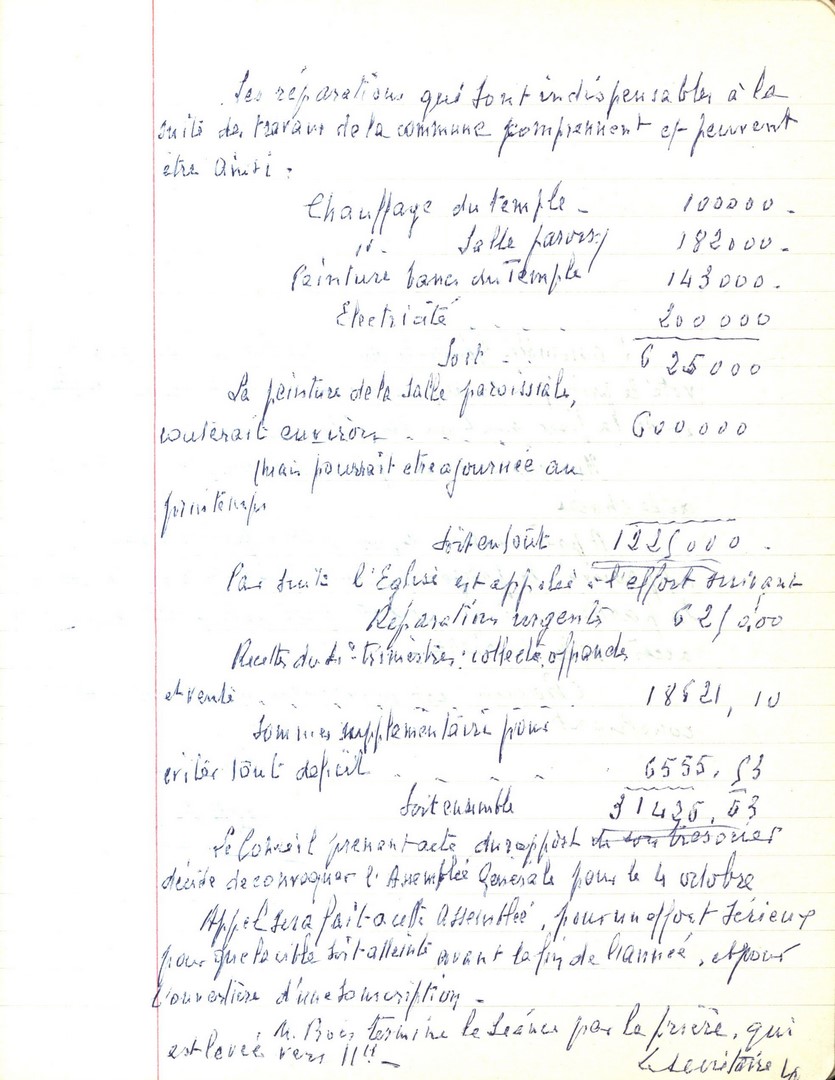 Les réparations qui sont indispensables à la
suite des travaux de la commune comprennent et peuvent
être ainsi :
Chauffage du temple - 100000 -
" - Salle paroiss. 182000 -
Peinture bancs du Temple 143000 -
Electricité . . . 200 000
Soit . . 625000
La peinture de la salle paroissiale,
couterait environ . . . 600 000
(mais pourrait etre ajournée au
printemps
Soit en tout 1225000 -
Par suite l'Eglise est appelée à l'effort suivant
Réparations urgentes 625000
Recettes du trimestre : collecte, offrandes
et vente . . . . 18621,10
Sommes supplémentaire pour
eviter tout deficit . . . 6555,53
Soit ensemble 31426,63
Le Conseil prenant acte du rapport de son tresorier
décide de convoquer l'Assemblée Générale pour le 4 octobre
Appel sera fait a cette Assemblée, pour un effort sérieux
pour que la cible soit atteinte avant la fin de l'année, et pour
l'ouverture d'une souscription -
M. Bois termine la séance par la prière, qui
est levée vers 11H -
Le secrétaire